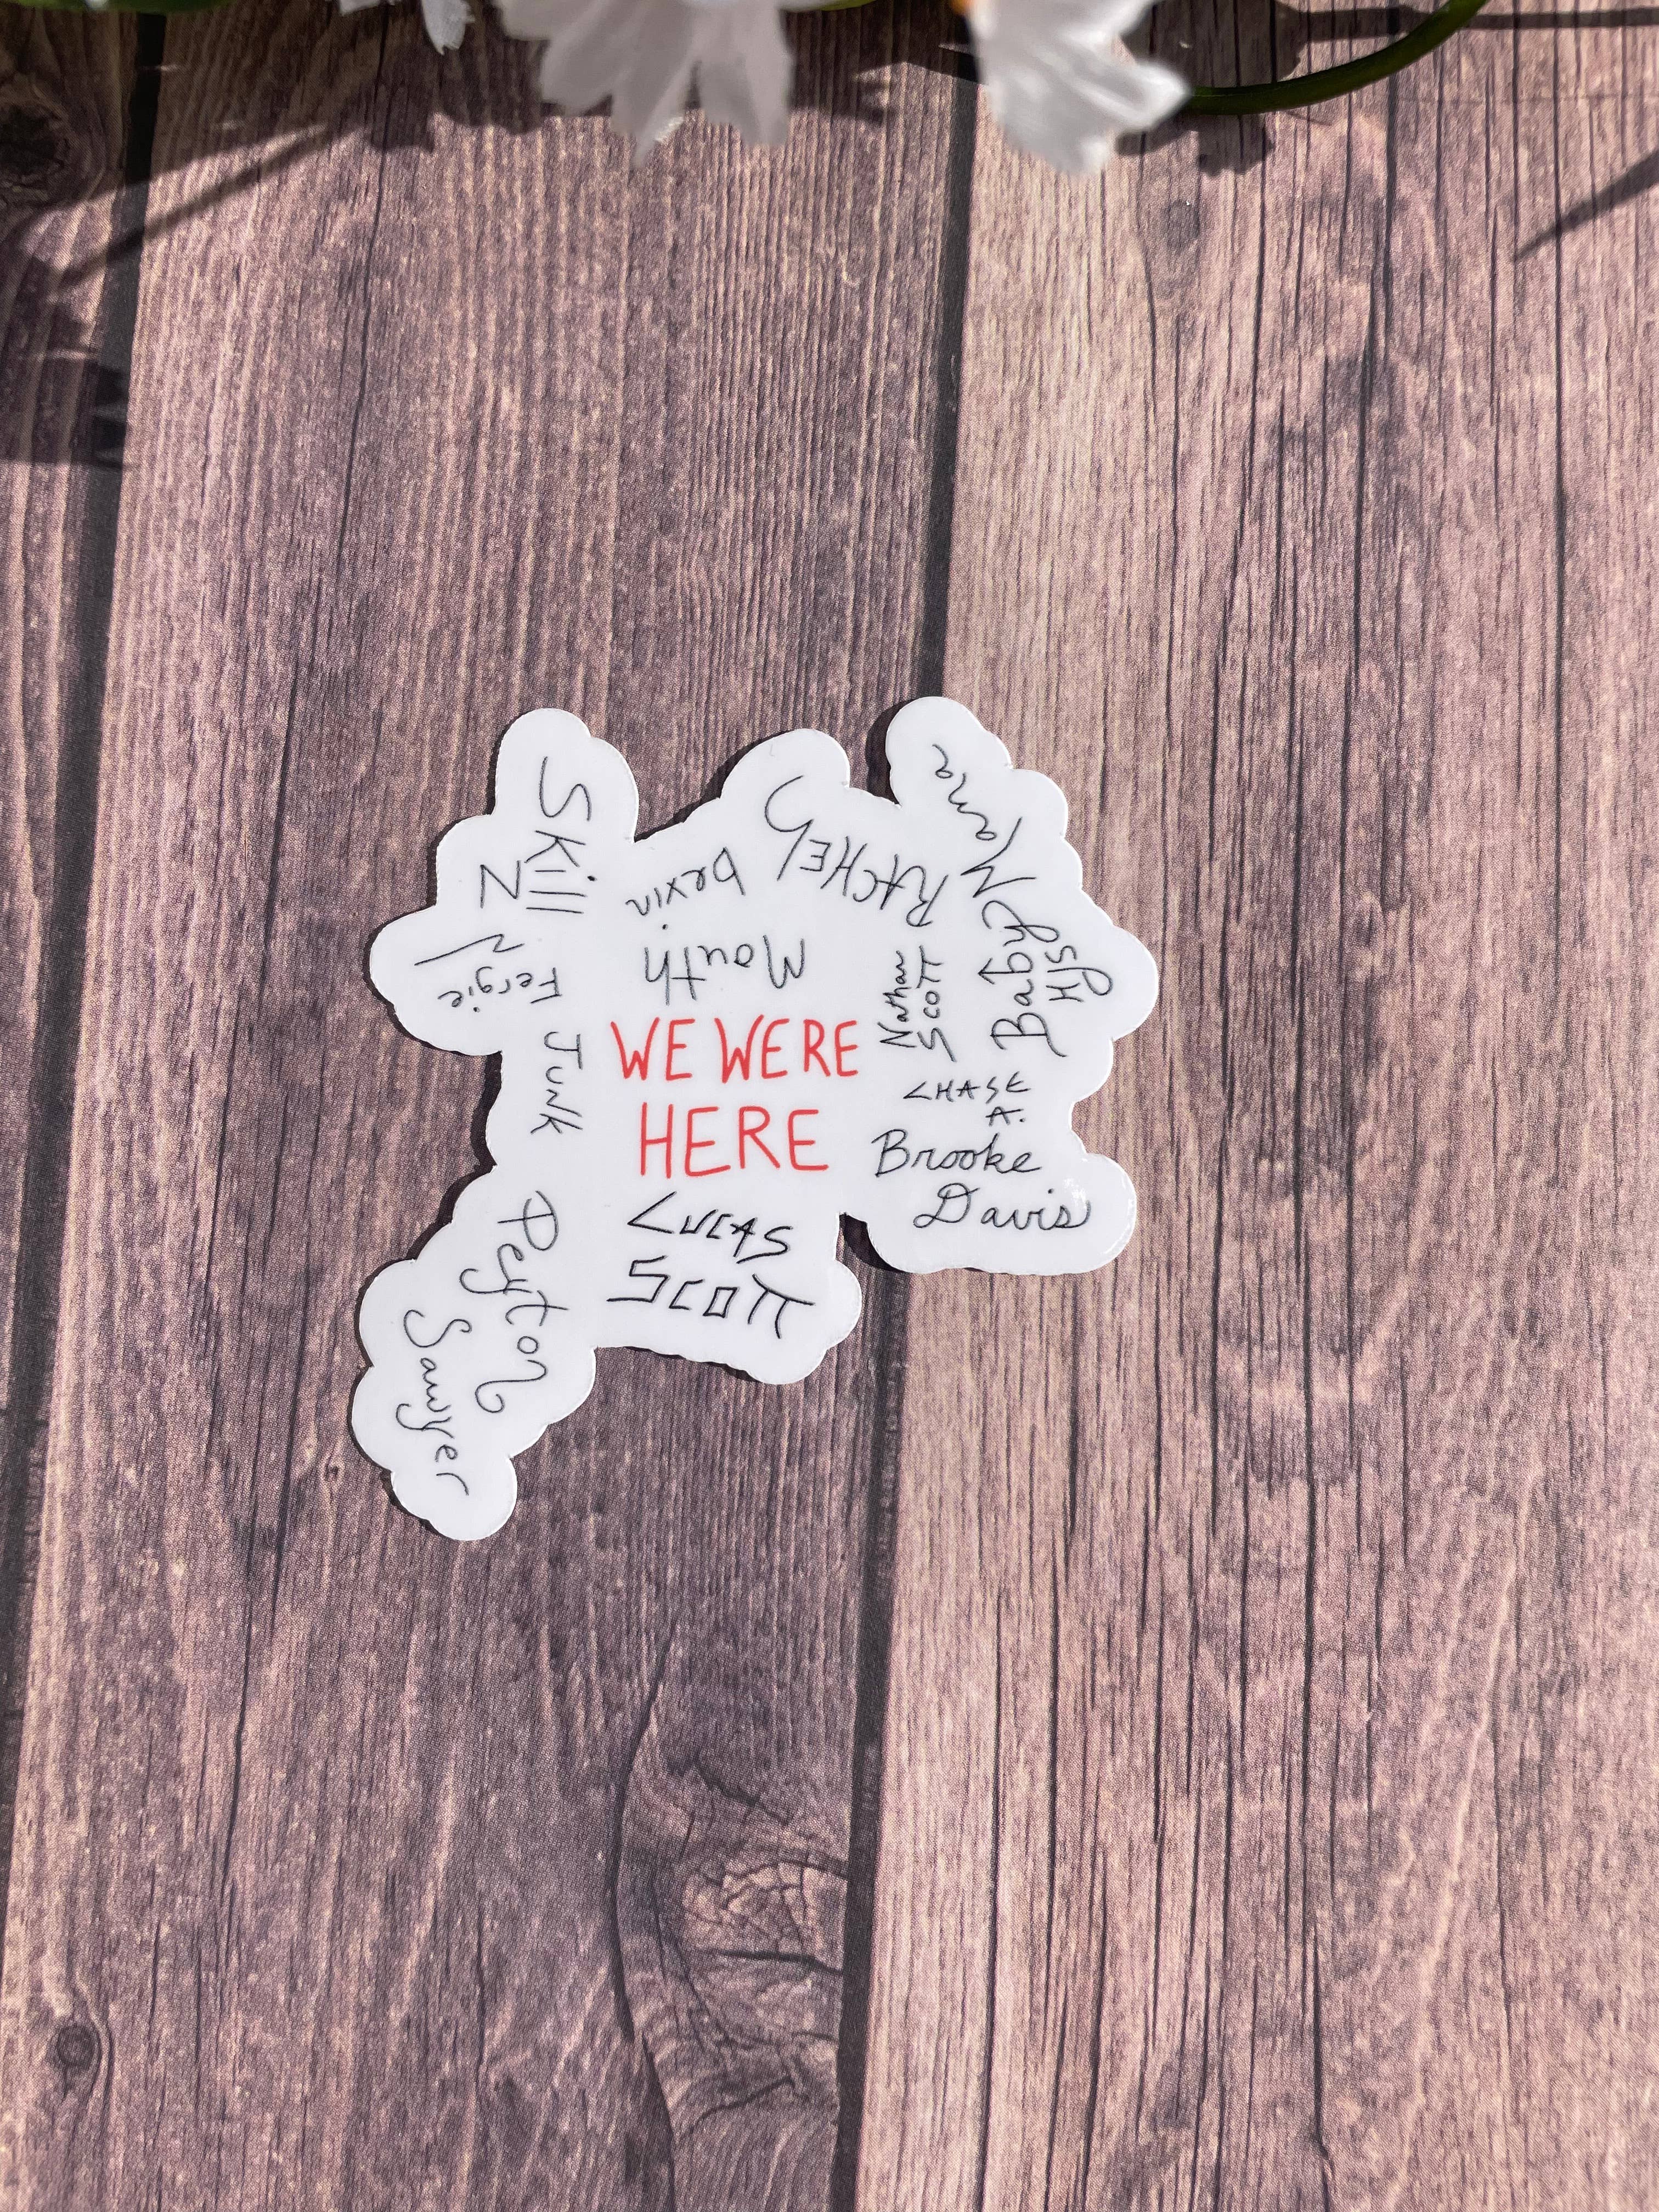 Skill
Z
Fergie
Junk
bevin
Mouth
RACHEL
G
Nathan
SCOTT
Baby
HJS
CHASE
A.
WE WERE
HERE
Brooke
Davis
LUCAS
SCOTT
Peyton
Sawyer